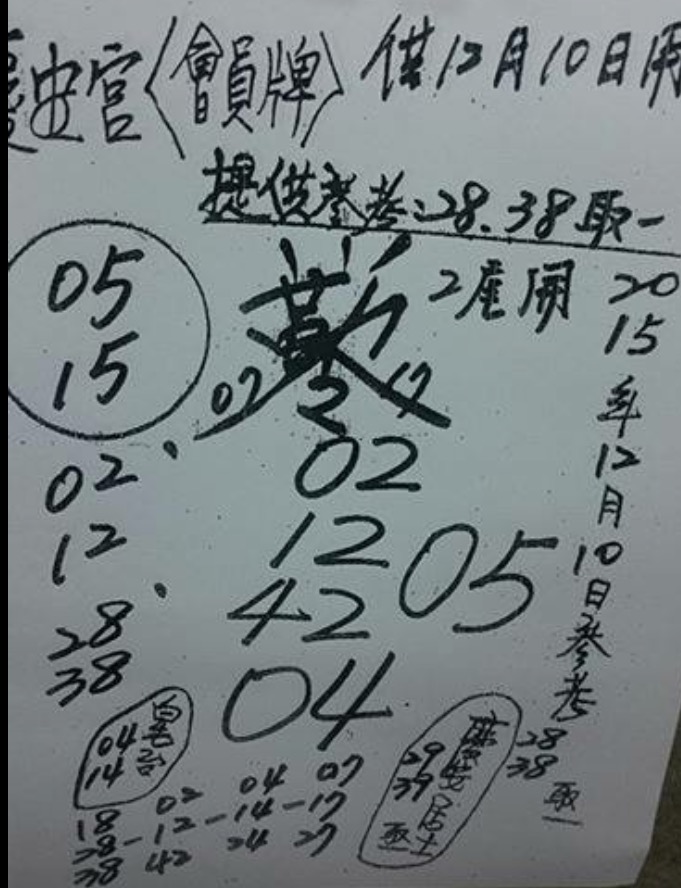 安宮〈會員牌〉供12月10日用
提供參考:28.38取一
2產開
05
15
07 2 17
02
12
28
38
02
12
42
04
05
2015年12月10日參考
28
38
取一
04
14
29
39
居士
取一
18 02 04 07
28-12-14-17
38 42 24 27